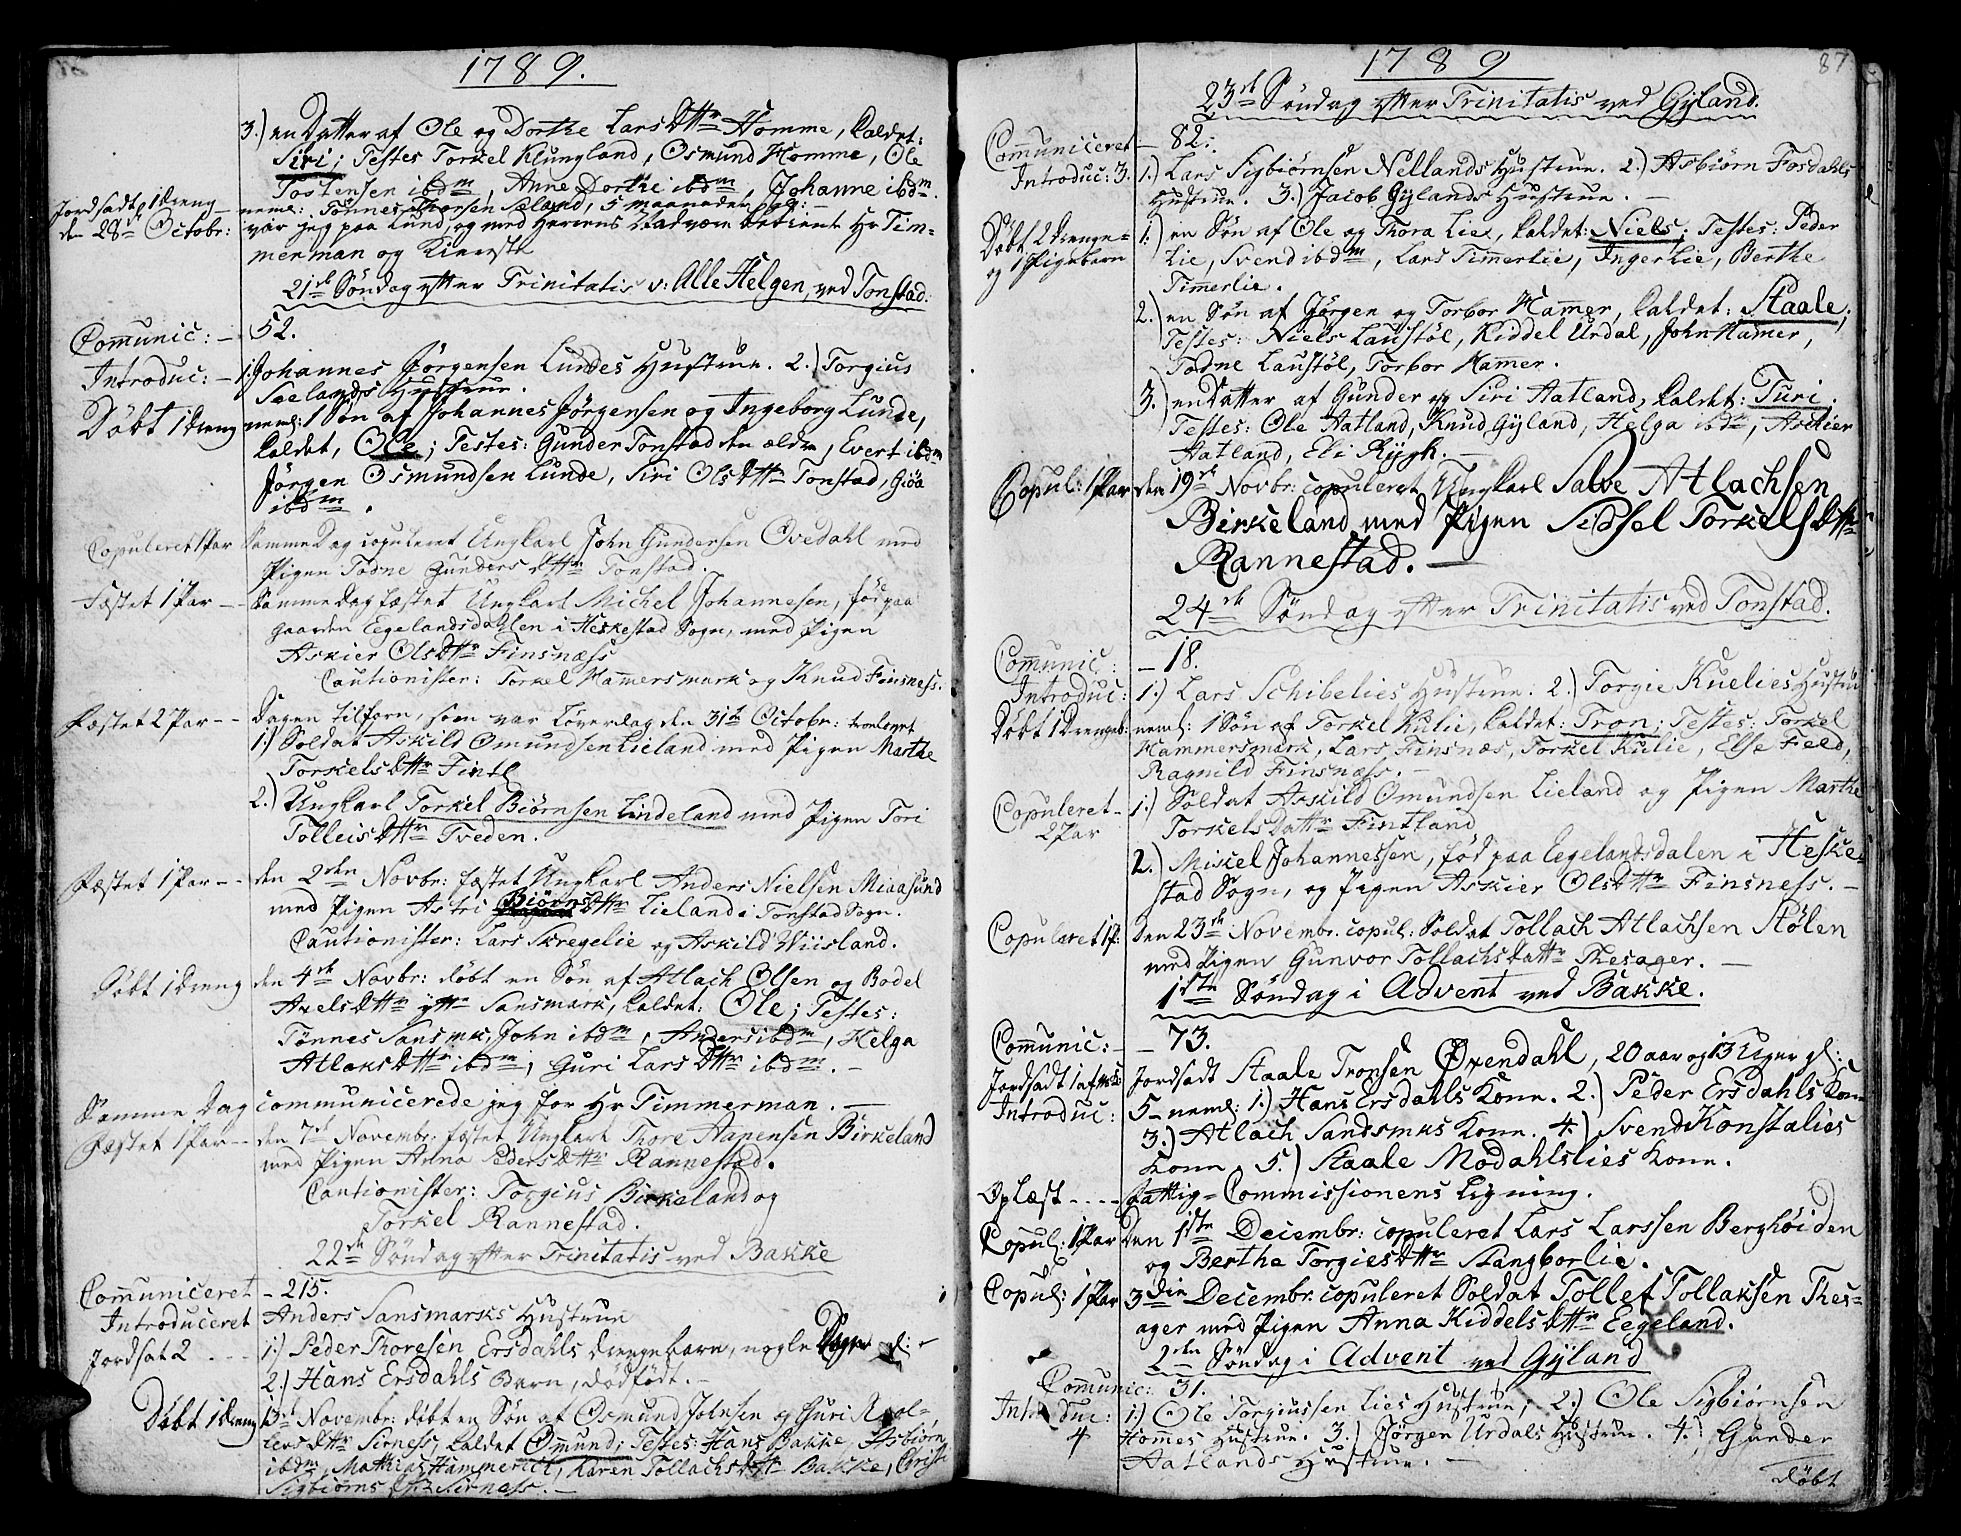 1789.
3.) en Datter af Ole og Dorthe LarsDttr Homme, kaldet:
Siri; Testes Torkel Klungland, Osmund Homme, Ole
Tostensen ibdm, Anne Dorthe ibdm, Johanne ibdm.
Jordsadt 1 dreng neml: Tønnes Thorsen Sæland, 5 maaneder gl: –
den 28de Octobr: var jeg paa Lund, og med Herrens Nadvære betiente Hr Tim-
merman og Kiereste
21de Søndag efter Trinitatis v: Alle Helgen, ved Tonstad.
Comunic: – 52.
Introduc: – 1. Johannes Jørgensen Lundes Hustrue. 2.) Torgius
Sælands Hustrue.
Døbt 1 dreng neml: 1 Søn af Johannes Jørgensen og Ingeborg Lunde,
kaldet, Ole; Testes: Gunder Tonstad den ældre, Evert ibdm
Jørgen Osmundsen Lunde, Siri OlsDttr Tonstad, Giøa
ibdm.
Copuleret 1 Par Samme Dag copuleret Ungkarl John Gundersen Ovedahl med
Pigen Todne GundersDttr Tonstad.
Fæstet 1 Par – Samme dag fæstet Ungkarl Michel Johannesen, fød paa
gaarden Eegelandsdahlen i Heskestad Sogn, med Pigen
Askier OlsDttr Finsnæss
Cautionister: Torkel Hamersmark og Knud Finsness.
Fæstet 2 Par – – Dagen tilforn, som var Løverdag den 31te Octobr: troelovet
1.) Soldat Askild Omundsen Lieland med Pigen Marthe
TorkelsDttr Fintl
2.) Ungkarl Torkel Biørnsen Lindeland med Pigen Tori
TolleisDttr Tveden.
Fæstet 1 Par – – den 2den Novbr: fæstet Ungkarl Anders Nielsen Miaasund
med Pigen Astri BiørnsDttr Lieland i Tonstad Sogn.
Cautionister: Lars Skregelie og Askild Wiisland.
Døbt 1 dreng den 4de Novbr: døbt en Søn af Atlach Olsen og Bodel
AxelsDttr yttr Sansmark, kaldet: Ole; Testes:
Tønnes Sansmk, John ibdm, Anders ibdm, Helga
AtlaksDttr ibdm, Guri LarsDttr ibdm. –
Samme Dag communicerede jeg for Hr Timmerman. –
Fæstet 1 Par – – den 7de Novembr: fæstet Ungkarl Thore Aapensen Birkeland
med Pigen Anna PedersDttr Rannestad.
Cautionister: Torgius Birkeland og
Torkel Rannestad.
22de Søndag efter Trinitatis ved Bakke
Comuniceret – 215.
Introduceret Anders Sansmarks Hustrue
Jordsat 2 – – – 1.) Peder Thoresen Ersdahls drengebarn, nogle Dage gl: –
2.) Hans Ersdahls Barn, dødfødt. –
Døbt 1 dreng 13de Novembr: døbt en Søn af Osmund Johnsen og Guri
Sirness, kaldet Omund; Testes: Hans Bakke, Asbiørn
ibdm, Mathias Hammersel, Karen TollachsDttr Bakke,
Sigbiørns Sirness. –
1789
87
23de Søndag efter Trinitatis ved Gyland.
Comuniceret – 82.
Introduc: 3. 1.) Lars Sigbiørnsen Nellands Hustrue. 2.) Asbiørn Fosdahls
Hustrue. 3.) Jacob Gylands Hustrue. –
Døbt 2 drenge- 1.) en Søn af Ole og Thora Lie, kaldet: Niels; Testes: Peder
og 1 Pigebarn Lie, Svend ibdm, Lars Timerlie, Inger Lie, Berthe
Timerlie.
2.) en Søn af Jørgen og Torbor Hamer, kaldet: Staale;
Testes: Niels Laustøl, Kiddel Urdal, John Hamer,
Todne Laustøl, Torbor Hamer.
3.) en Datter af Gunder og Siri Aatland, kaldet: Turi.
Testes: Ole Aatland, Knud Gyland, Helga ibdm, Askier
Aatland, Eli Rygh. –
Copul: 1 Par den 19de Novbr: copuleret Ungkarl Salve Atlachsen
Birkeland med Pigen Sidsel TorkelsDttr
Rannestad. –
24de Søndag efter Trinitatis ved Tonstad.
Comunic: – 18.
Introduc: 1.) Lars Schibelies Hustrue. 2.) Torgie Kuelies Hustru
Døbt 1 drengeb: neml: 1 Søn af Torkel Kulie, kaldet: Tron; Testes: Torkel
Hammersmark, Lars Finsnæs, Torkel Kulie, Else Feed,
Ragnild Finsnæss. –
Copuleret – 1.) Soldat Askild Omundsen Lieland og Pigen Marthe
2 Par TorkelsDattr Fintland
2.) Mickel Johannessen, fød paa Eegelandsdalen i Heske-
stad Sogn, og Pigen Askier OlsDttr Finsness. –
Copuleret 1 P: den 23de Novembr. copul: Soldat Tollach Atlachsen Stølen
med Pigen Gunvor TollachsDattr Thesager. –
1ste Søndag i Advent ved Bakke.
Comunic: – – 73.
Jordsadt 1 Jordsadt Staale Tronsen Øxendahl, 20 aar og 13 Uger gl:
Introduc: 5 – neml: 1.) Hans Ersdahls Kone. 2.) Peder Ersdahls Kone
3.) Atlach Sandsmks Kone. 4.) Svend Konstalies
Kone. 5.) Staale Modahlslies Kone.
Oplæst – – – – Fattig-Commissionens Ligning.
Copul: 1 Par Den 1ste Decembr: copuleret Lars Larssen Berghøiden
og Berthe TorgiesDttr Stangborlie.
Copul: 1 Par 3die Decembr. copuleret Soldat Tollef Tollaksen Thes-
ager med Pigen Anna KiddelsDttr Eegeland.
2den Søndag i Advent ved Gyland
Comunic: 31.
Introduc: 1.) Ole Torgiussen Lies Hustrue, 2.) Ole Sigbiørnsen
4 Homes Hustrue. 3.) Jørgen Urdals Hustrue. 4.) Gunder
Aatlands Hustrue. –
døbt